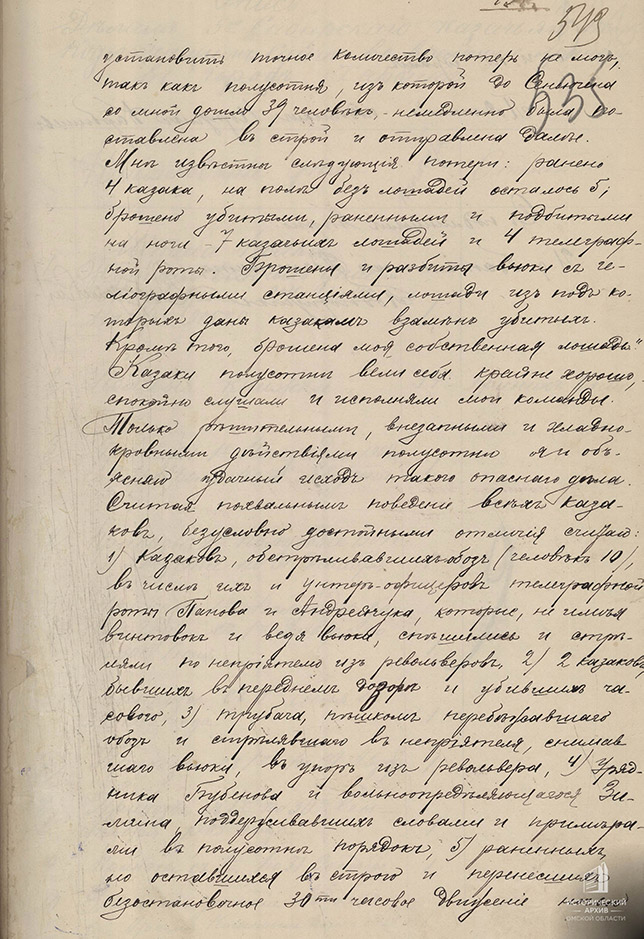 549
336
установить точное количество потерь не могъ,
такъ какъ полусотня, изъ которой до Сеньчена
со мной дошло 39 человѣкъ, немедленно была по-
ставлена въ строй и отправлена далѣе.
Мнѣ извѣстны слѣдующія потери: ранено
4 казака, на полѣ безъ лошадей осталось 5;
брошено убитыми, раненными и подбитыми
на ноги - 7 казачьихъ лошадей и 4 телеграф-
ной роты. Брошены и разбиты вьюки съ ге-
ліографными станціями, лошади изъ подъ ко-
торыхъ даны казакамъ взамѣнъ убитыхъ.
Кромѣ того, брошена моя собственная лошадь"
"Казаки полусотни вели себя крайне хорошо,
спокойно слушали и исполняли мои команды.
Только рѣшительными, внезапными и хладно-
кровными дѣйствіями полусотни я и объ-
ясняю удачный исходъ такого опаснаго дѣла.
Считая похвальнымъ поведеніе всѣхъ каза-
ковъ, безусловно достойными отличія считаю:
1) казаковъ, обстрѣливавшихъ обозъ (человѣкъ 10),
въ числѣ ихъ и унтеръ-офицеровъ телеграфной
роты Панова и Андрейчука, которые, не имѣя
винтовокъ и ведя вьюки, спѣшились и стрѣ-
ляли по непріятелю изъ револьверовъ, 2) 2 казаковъ,
бывшихъ въ переднемъ дозорѣ и убившихъ ча-
сового, 3) трубача, пѣшкомъ перебѣжавшаго
обозъ и стрѣлявшаго въ непріятеля, снимав
шаго вьюки, въ упоръ изъ револьвера, 4) Уряд
ника Бубенова и вольноопредѣляющагося Зи-
мина поддерживавшихъ словами и примѣра-
ми въ полусотнѣ порядокъ, 5) раненныхъ,
но оставшихся въ строю и перенесшихъ
безостановочное 30ти часовое движеніе
ИСТОРИЧЕСКИЙ
АРХИВ
ОМСКОЙ ОБЛАСТИ